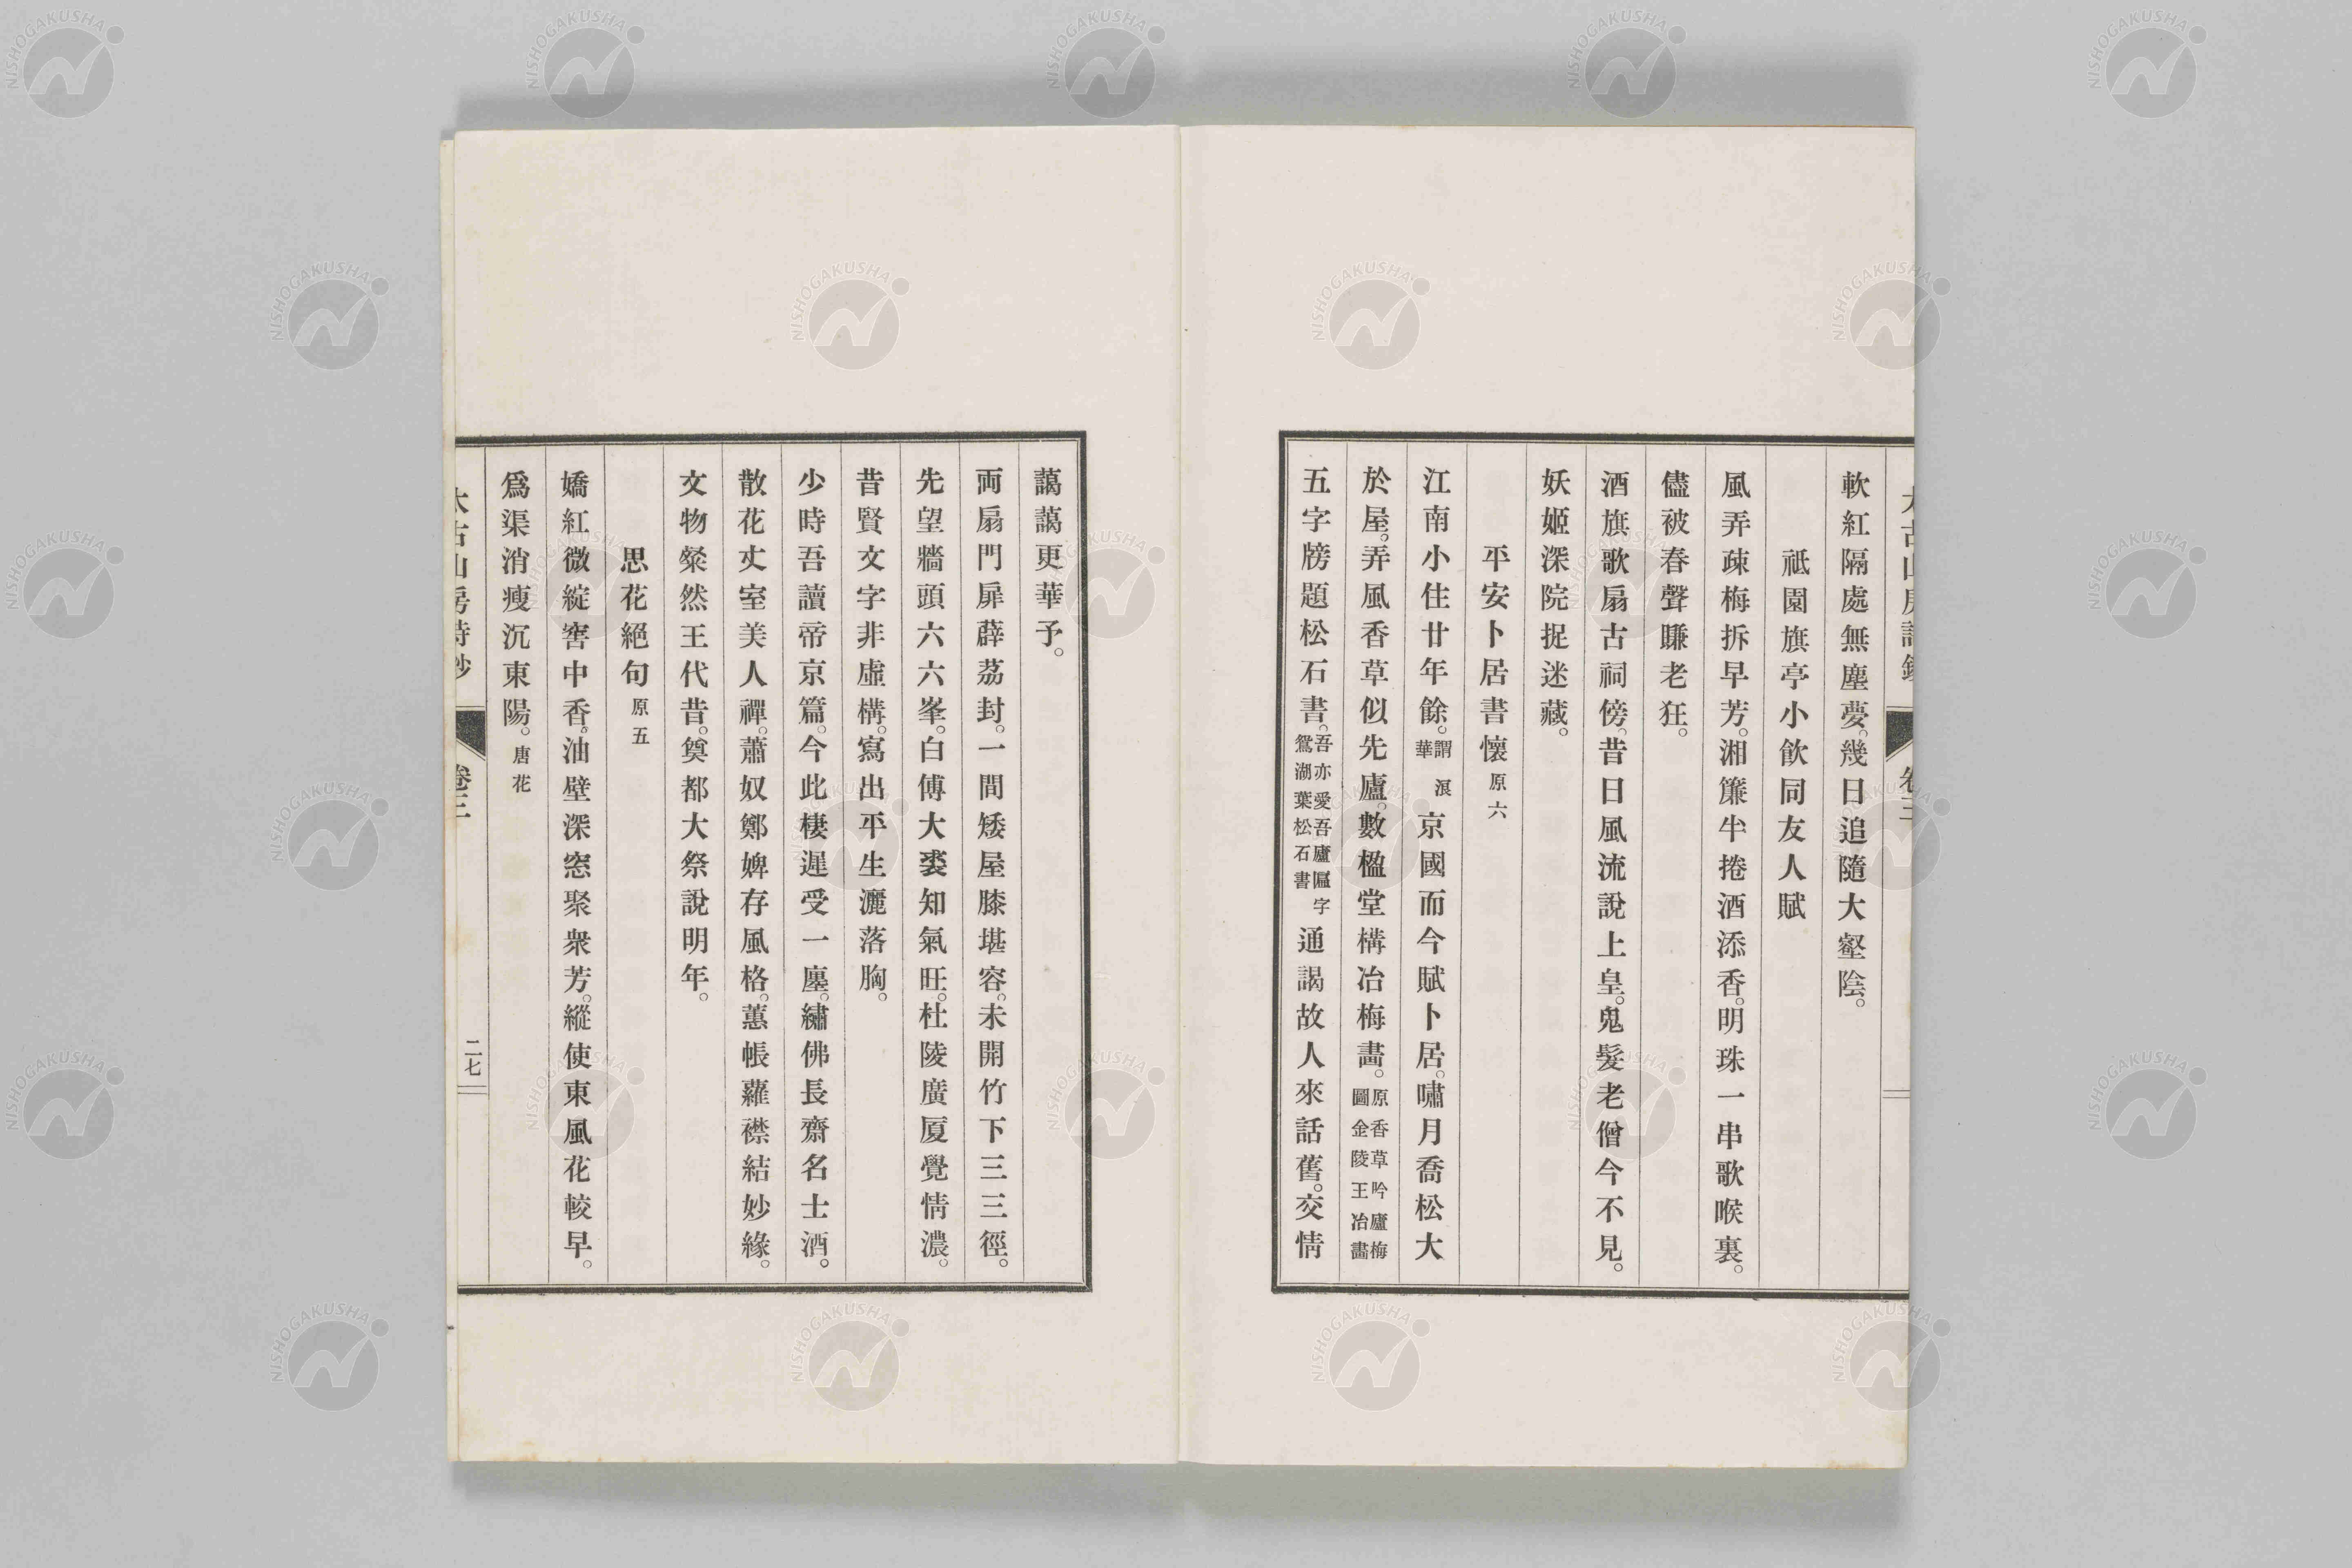 軟紅隔處無塵夢。幾日追隨大壑陰。
祗園旗亭小飮同友人賦
風弄疎梅拆早芳。湘簾半捲酒添香。明珠一串歌喉裏。
儘被春聲賺老狂。
酒旗歌扇古祠傍。昔日風流說上皇。鬼髮老僧今不見。
妖姬深院捉迷藏。
平安卜居書懷原六
江南小住廿年餘。謂浪華京國而今賦卜居。嘯月喬松大
於屋。弄風香草似先廬。數楹堂構冶梅畫。原香草吟廬梅圖金陵王冶畵
五字牓題松石書。吾亦愛吾廬匾字鴛湖葉松石書通謁故人來話舊。交情
藹藹更華予。
両扇門扉薜荔封。一間矮屋膝堪容。未開竹下三三徑。
先望牆頭六六峯。白傅大裘知氣旺。杜陵廣厦覺情濃。
昔賢文字非虛構。寫出平生灑落胸。
少時吾讀帝京篇。今此棲遲受一廛。繡佛長齋名士酒。
散花丈室美人禪。蕭奴鄭婢存風格。蕙帳蘿襟結妙緣。
文物粲然王代昔。奠都大祭說明年。
思花絕句原五
嬌紅微綻窖中香。油壁深窓聚衆芳。縱使東風花較早。
爲渠消瘦沉東陽。唐花
太古山房詩鈔 卷三 二七